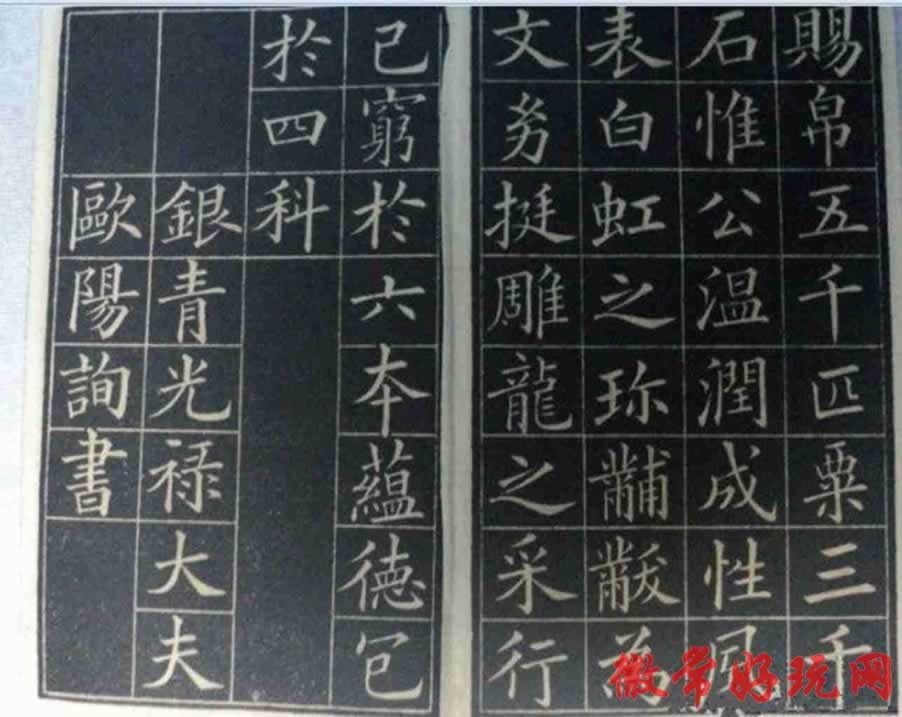 賜帛五千匹粟三千
石惟公温潤成性夙
表白虹之珍黼黻為
文幼挺雕龍之采行
已窮於六本蘊德包
於四科
銀青光禄大夫
歐陽詢書
徽常好玩网